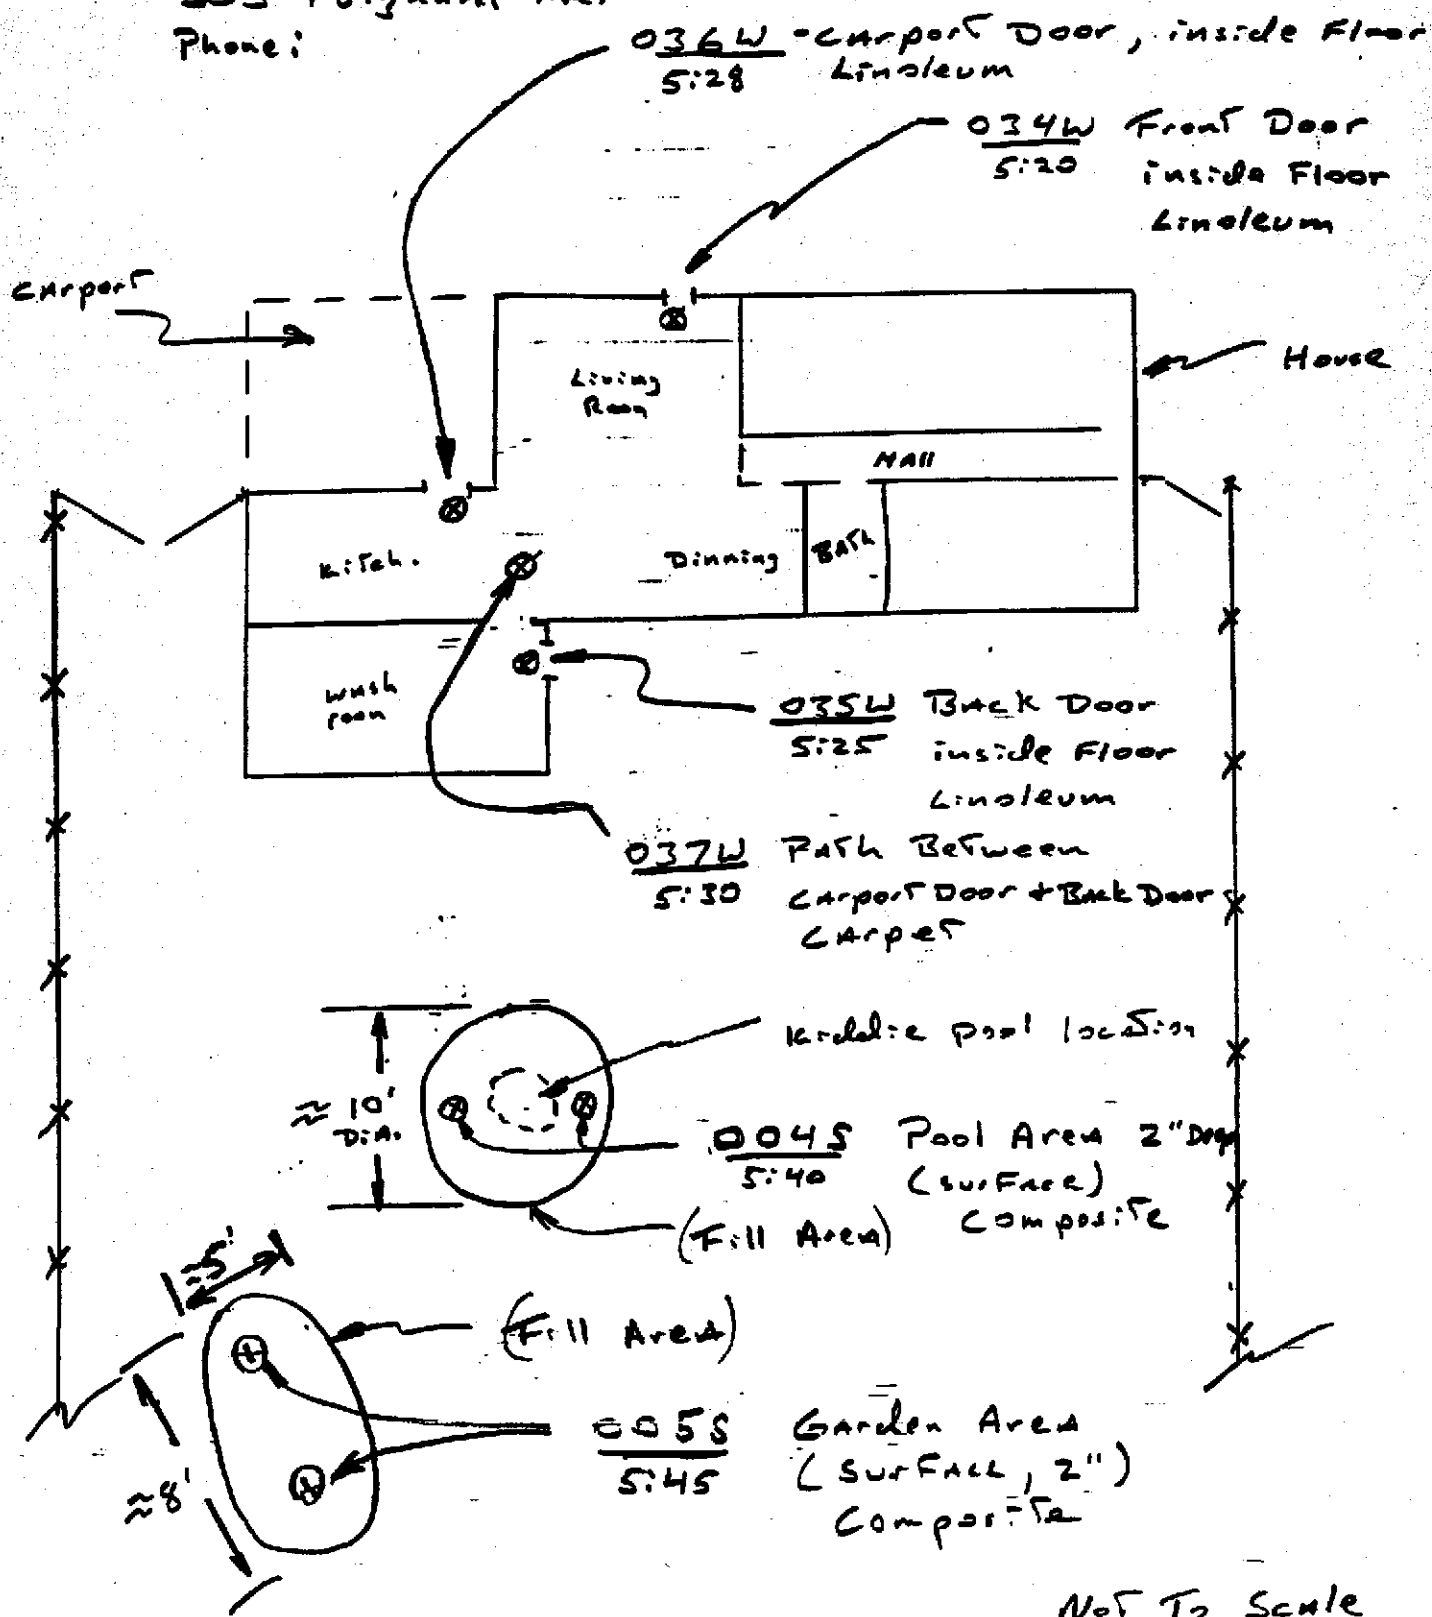 Phone:
036W - Carport Door, inside Floor
5:28 Linoleum
034W Front Door
5:20 inside Floor
Linoleum
Carport
House
Living
Room
Hall
Kitch.
Dinning
Bath
wash
room
035W Back Door
5:25 inside Floor
Linoleum
037W Path Between
5:30 Carport Door + Back Door
Carpet
Kiddie pool location
≈ 10'
Dia.
004S Pool Area 2" Deep
5:40 (surface)
Composite
(Fill Area)
≈5'
(Fill Area)
005S Garden Area
5:45 (Surface, 2")
Composite
≈8'
Not To Scale